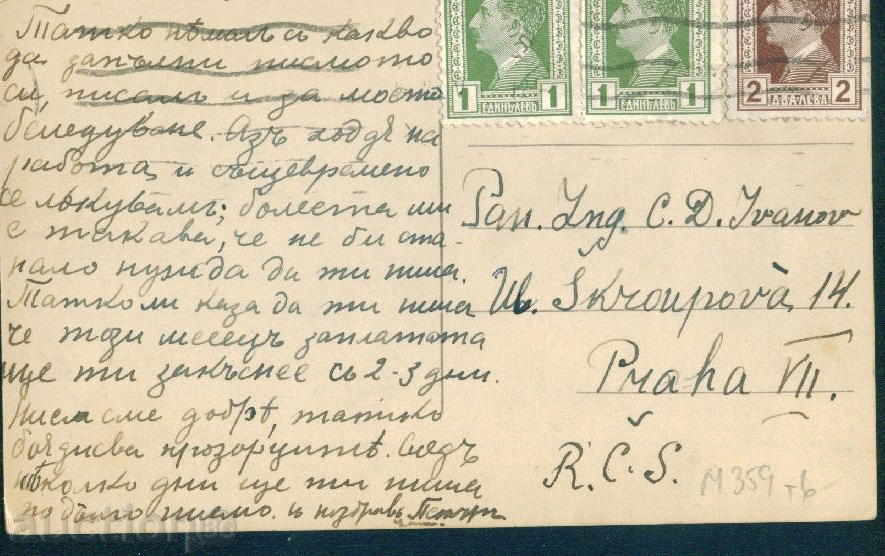 Татко нѣмалъ съ какво
да запълни писмото
си, писалъ и за моето
боледуване. Азъ ходя на
работа, и същевремено
се лѣкувамъ; болестта ми
е такава, че не би ста-
нало нужда да ти пиша.
Татко ми каза да ти пиша
че този месецъ заплатата
ще ти закъснее съ 2-3 дни.
Иначе сме добрѣ, татко
боядисва прозорцитѣ. Следъ
нѣколко дни ще ти пиша
по дълго писмо. Съ поздравъ Петър
1 ЕДИНЪ ЛЕВЪ 1
1 ЕДИНЪ ЛЕВЪ 1
2 ДВА ЛЕВА 2
Pan. Ing. C. D. Ivanov
Ul. Škroupovà 14.
Praha VII.
R.Č.S.
M 359